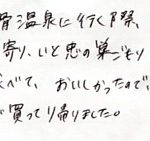 骨温泉に行く際、
寄り、いと忠の巣ごもり
べて、おいしかったので、
で買って帰りました。